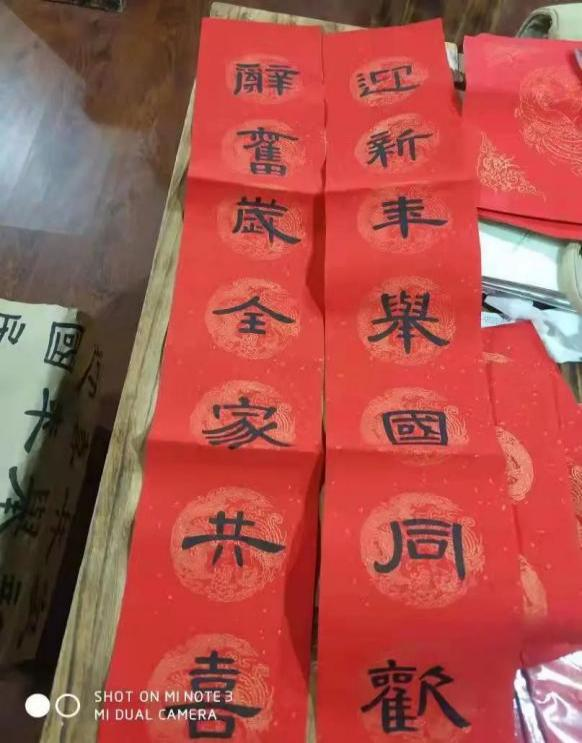 迎新年舉國同歡
辭舊歲全家共喜
國
SHOT ON MI NOTE 3
MI DUAL CAMERA